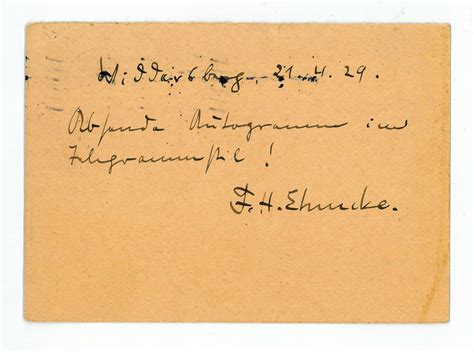 Widdersberg, 21.4.29.
Absende Autogramm im
Telegrammstil!
F.H.Ehmcke.